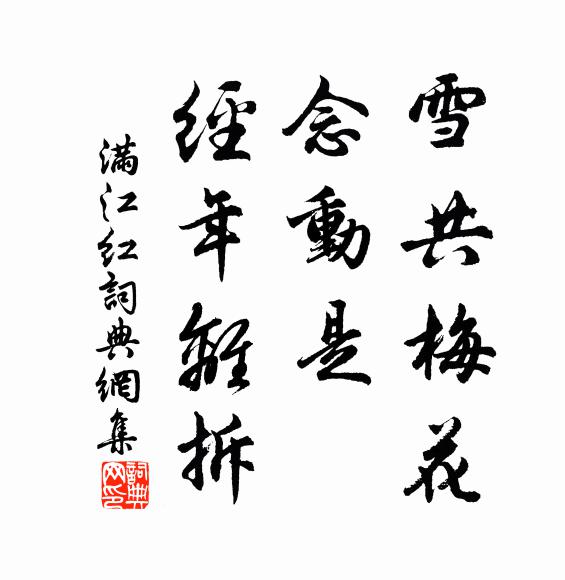 雪共梅花
念動是
經年離拆
滿江紅詞典網集
詞典網印